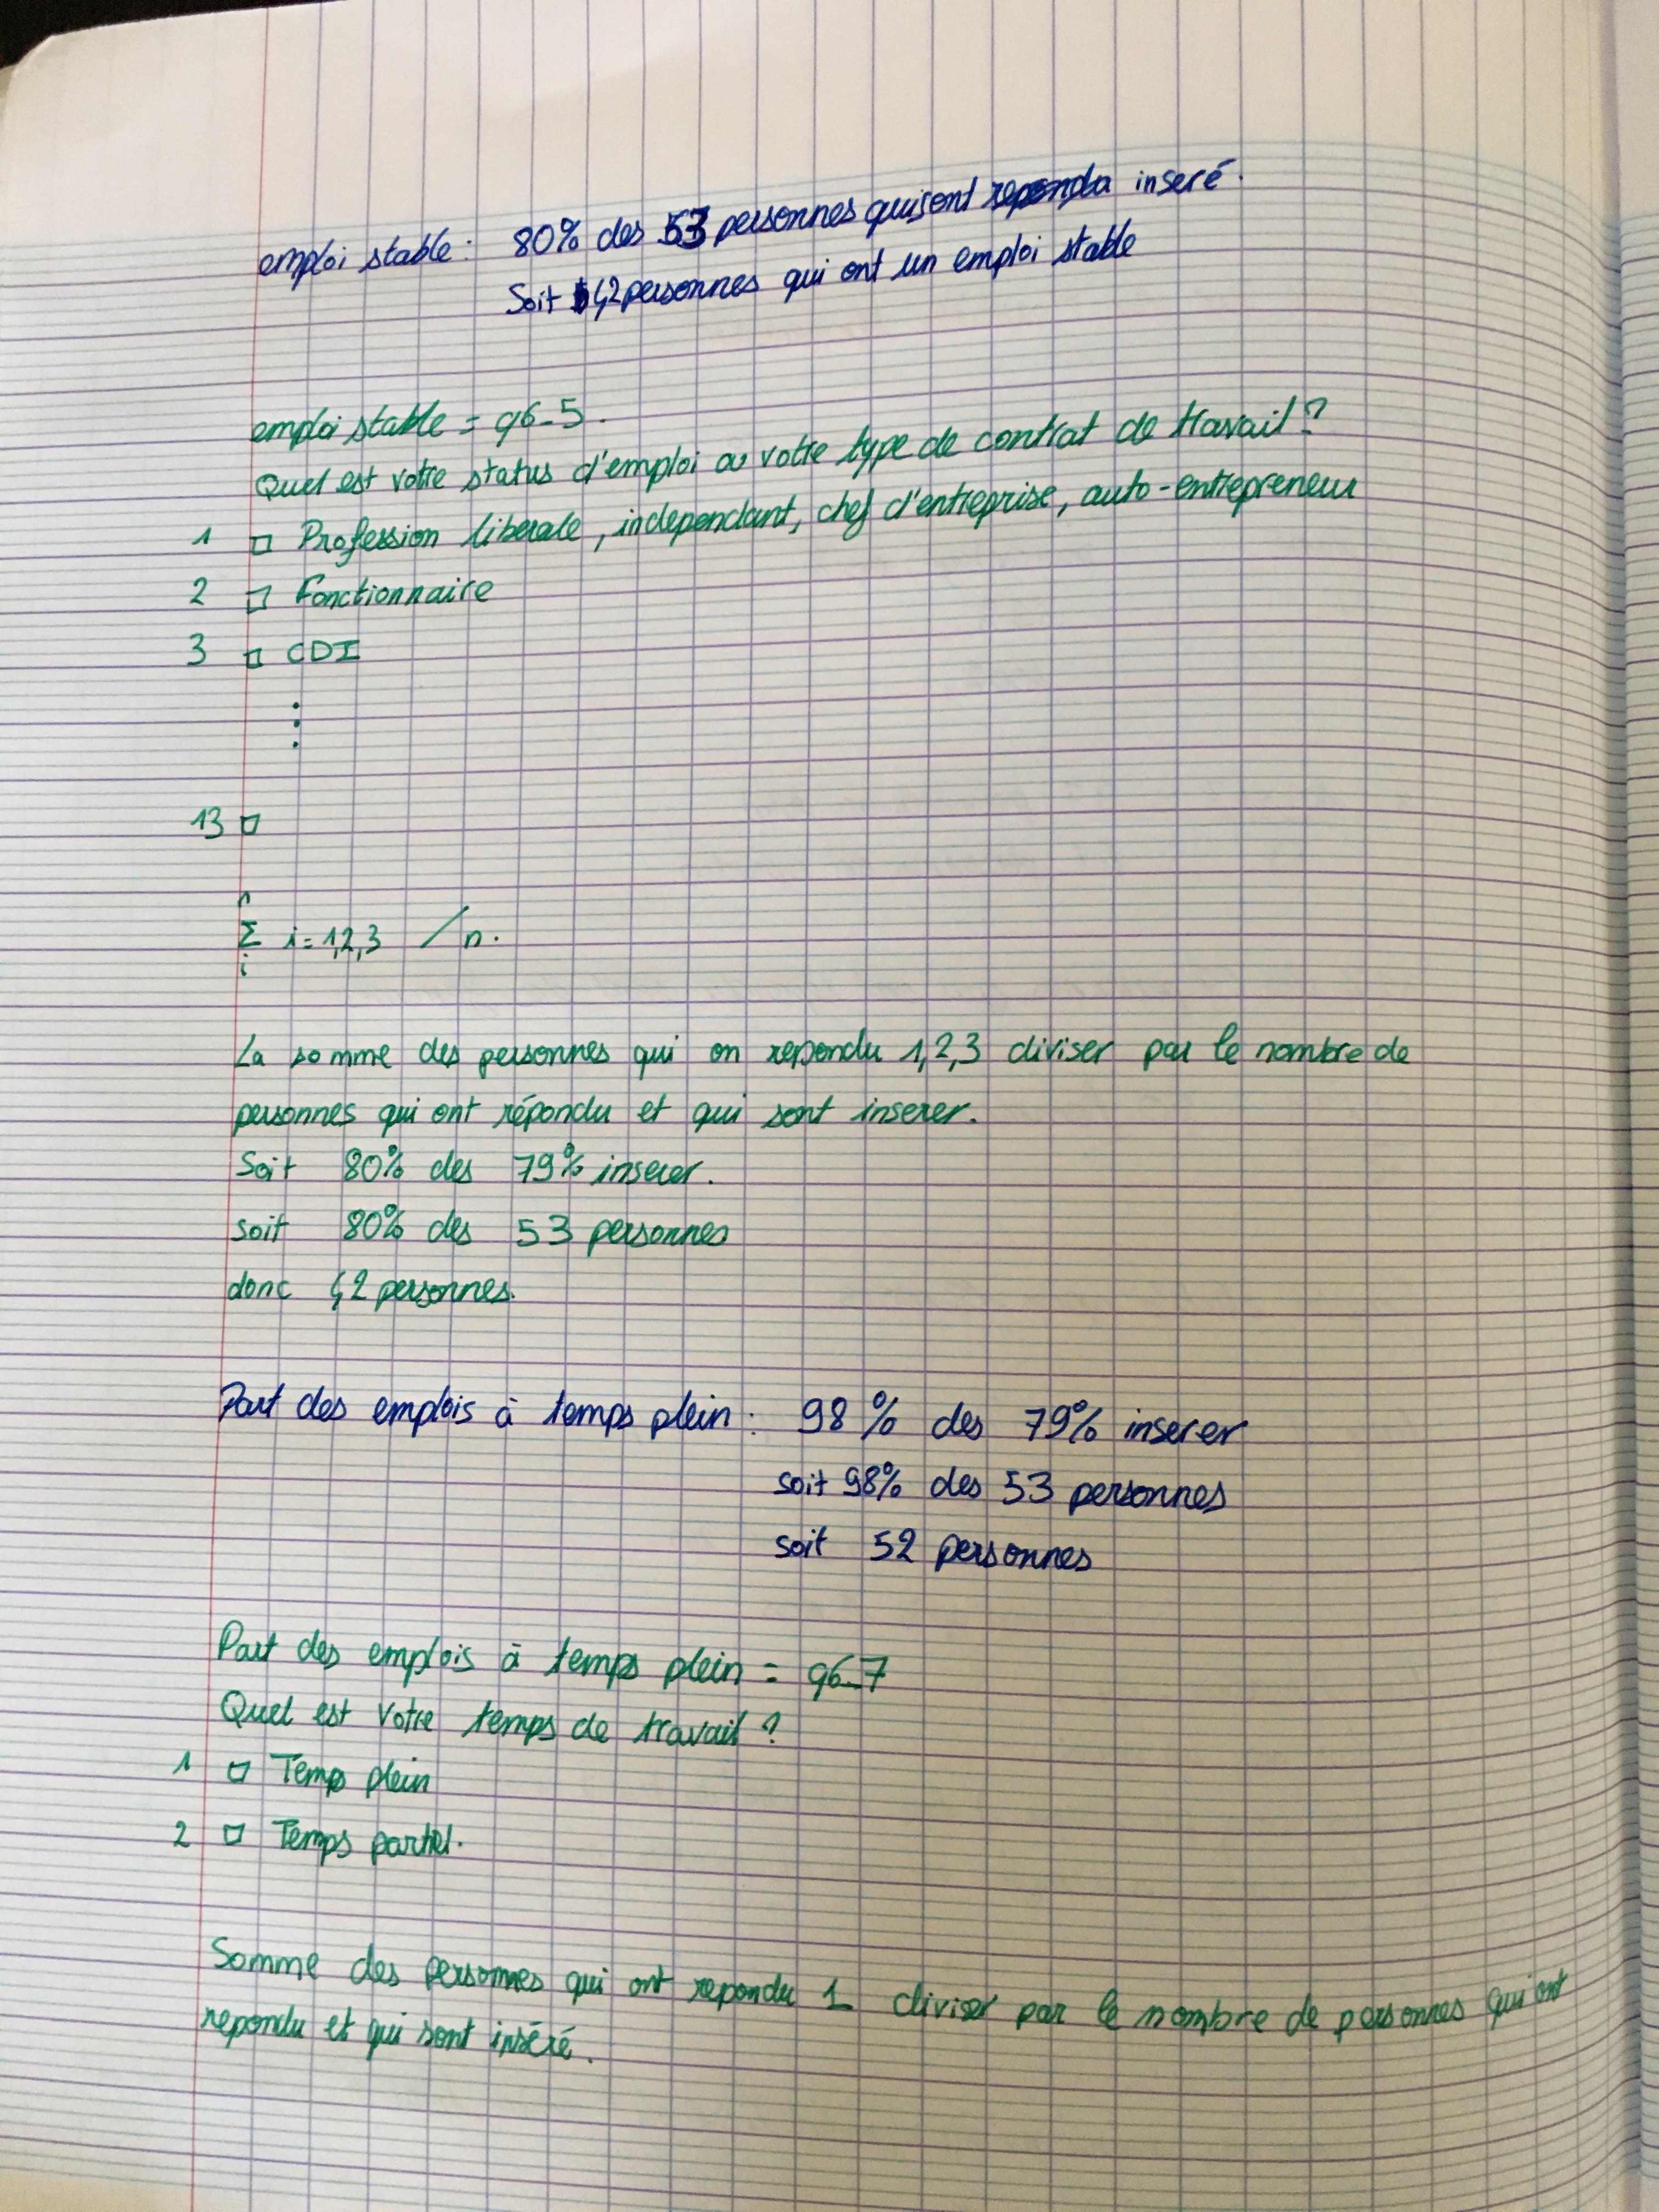 emploi stable : 80% des 53 personnes qui sont inseré.
Soit 42 personnes qui ont un emploi stable
emploi stable = q6_5.
Quel est votre status d'emploi ou votre type de contrat de travail ?
1 □ Profession liberale, independant, chef d'entreprise, auto-entrepreneur
2 □ Fonctionnaire
3 □ CDI
⋮
13 □
n
Σ i = 1,2,3 / n.
i
La somme des personnes qui on repondu 1,2,3 diviser par le nombre de
personnes qui ont répondu et qui sont inserer.
Soit 80% des 79% inserer.
soit 80% des 53 personnes
donc 42 personnes.
Part des emplois à temps plein : 98 % des 79% inserer
soit 98% des 53 personnes
soit 52 personnes
Part des emplois à temps plein = q6_7
Quel est votre temps de travail ?
1 □ Temps plein
2 □ Temps partiel.
Somme des personnes qui ont repondu 1 diviser par le nombre de personnes qui ont
repondu et qui sont inséré.